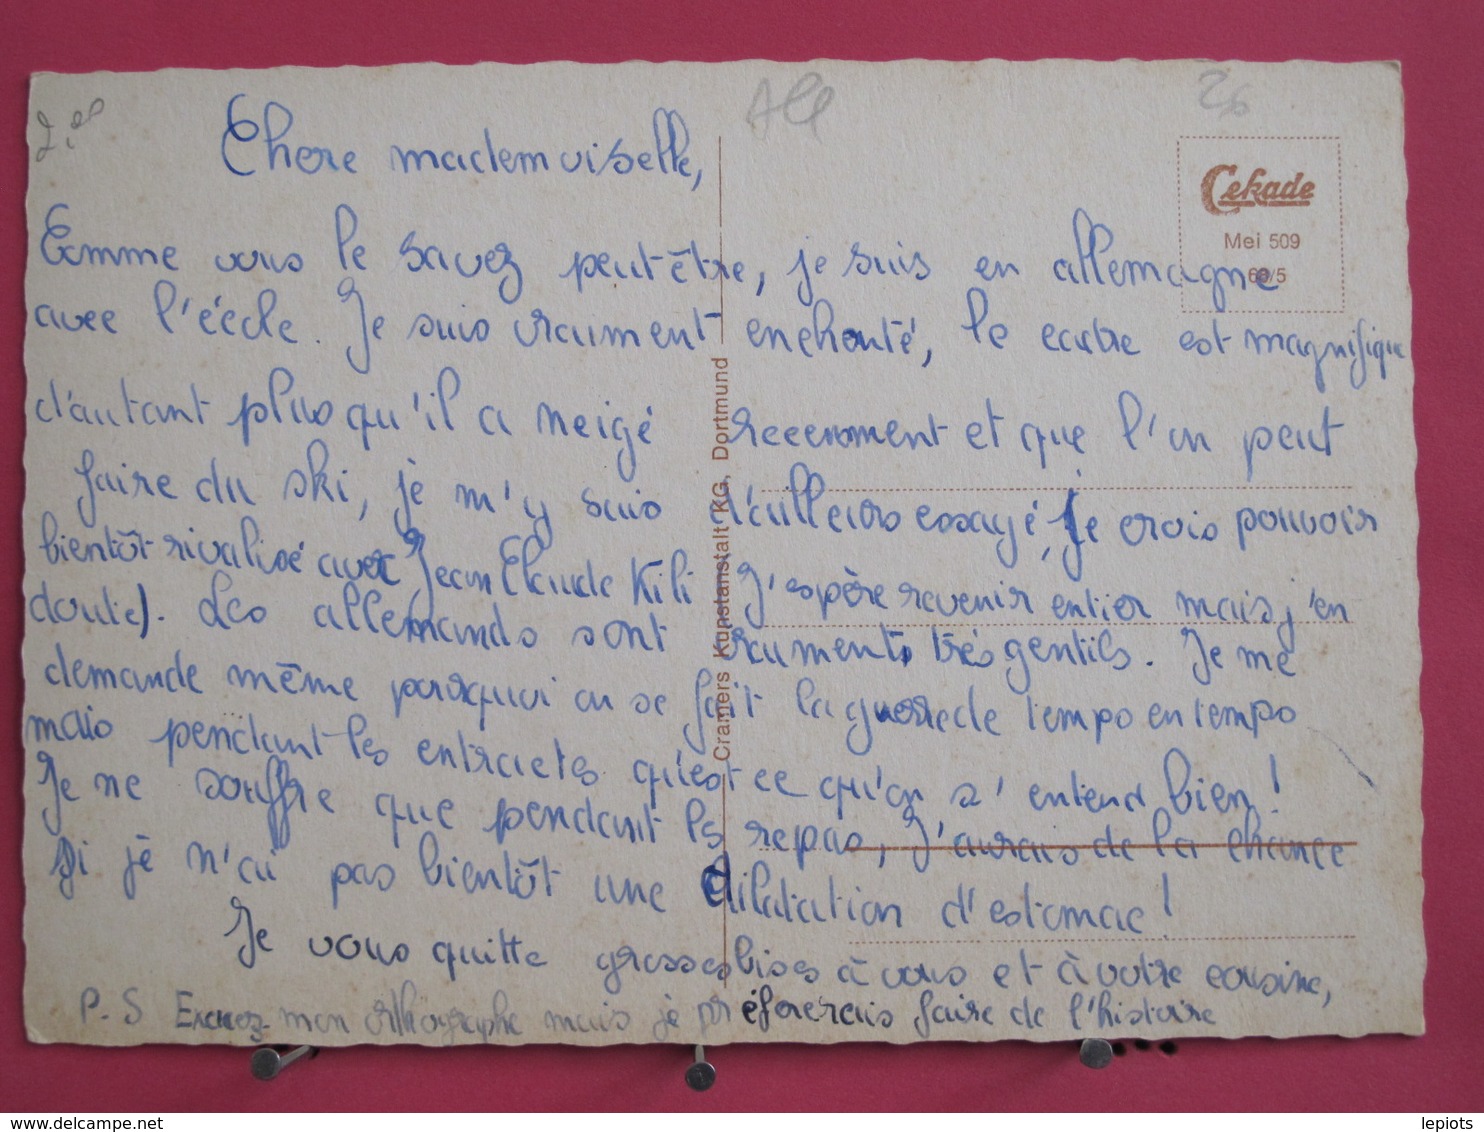 Chere mademoiselle,
Comme vous le savez peut être, je suis en allemagne
avec l'éécole. Je suis vraiment enchanté, le cadre est magnifique
d'autant plus qu'il a neigé recemment et que l'on peut
faire du ski, je m'y suis d'ailleurs essayé, Je crois pouvoir
bientôt rivalisé avec Jean Claude Kili J'espère revenir entier mais j'en
doute). Les allemands sont vraiment très gentils. Je me
demande même pourquoi on se fait la guerre de temps en temps
mais pendant les entractes qu'est ce qu'on s'entend bien!
Je ne souffre que pendant les repas, J'aurais de la chance
si je n'ai pas bientôt une dilatation d'estomac!
Je vous quitte grosses bises à vous et à votre cousine,
P.S Excusez mon orthographe mais je préfererais faire de l'histoire
2,00
All
Cekade
Mei 509
68/5
Cramers Kunstanstalt KG, Dortmund
lepiots
www.delcampe.net